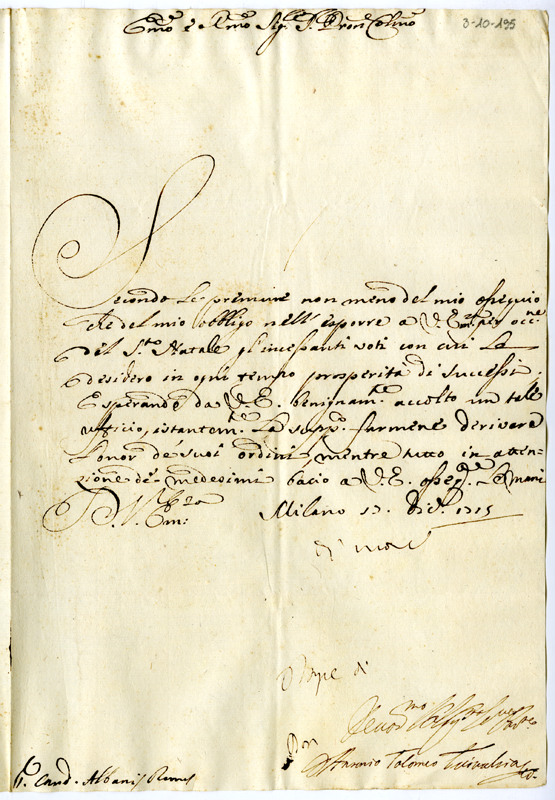 Emo e Rmo Sig.r P.ron Colmo
3-10-195
Seconda Le premure non meno del mio ossequio
che del mio obbligo nell' esporre a V. Em.za per occ.ne
del S.to Natale gl'incessanti voti con cui La
desidero in ogni tempo prosperità di successi.
E sperando da V. E. benignam.te accolto un tale
ufficio, istantem.te La supp.co farmene derivare
l'onor de suoi ordini mentre tutto in atten-
zione de medesimi bacio a V. E. osseq.te Le mani
D. V. Em:za Milano 17. Dic.e 1715
Don
Antonio Tolomeo Trivulzio
S.r Card. Albani Roma